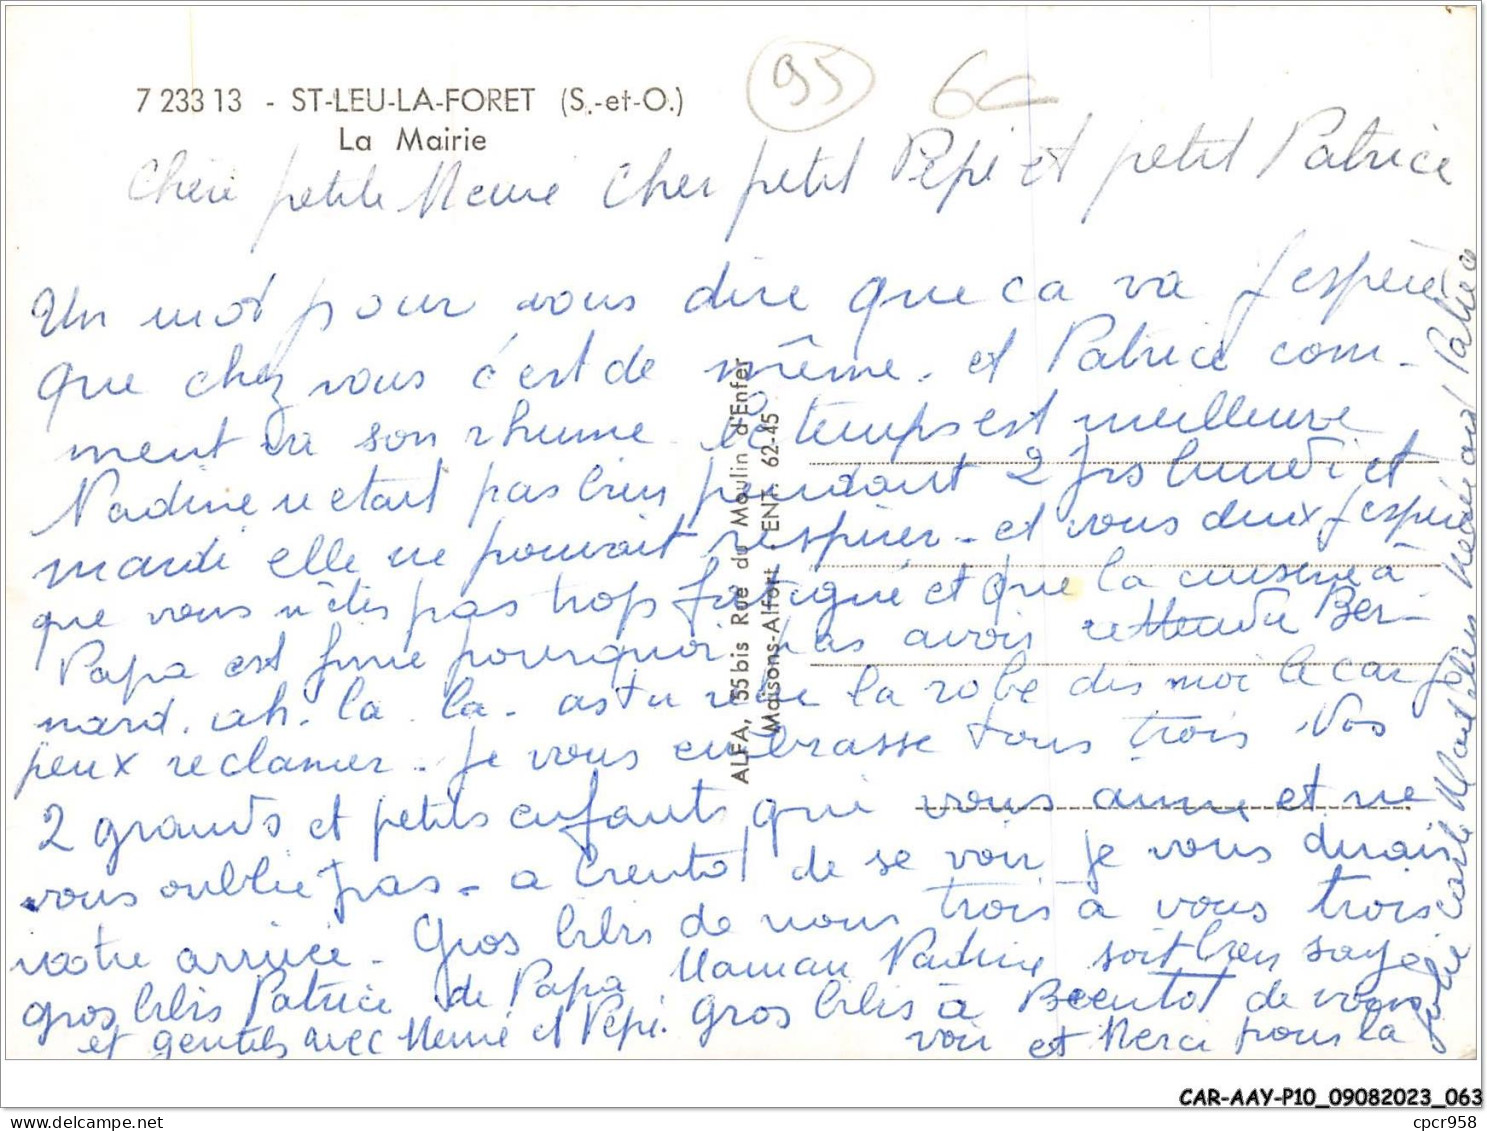 7 233 13 - ST-LEU-LA-FORET (S.-et-O.)
La Mairie
95
6€
Chère petite Meme Cher petit Pépé et petit Patrice
Un mot pour vous dire que ca va J espère
que chez vous c'est de même. et Patrice com-
ment va son rhume. le temps est meilleure
Nadine n etait pas bien pendant 2 Jrs lundi et
mardi elle ne pouvait respirer. et vous deux J espère
que vous n'êtes pas trop fatigué et que la cuisine à
Papa est finie pourquoi pas avoir attendu Ber-
nard. ah. la. la. as tu reçu la robe dis moi le car Je
peux reclamer. Je vous embrasse tous trois Vos
2 grands et petits enfants qui vous aime et ne
vous oublie pas. a bientot de se voir Je vous dirais
notre arrivée. Gros bibis de nous trois à vous trois
gros bibis Patrice de Papa Maman Nadine soit bien sage
et gentils avec Meme et Pépé. gros bibis à Beentot de vous
voir et Merci pour la
jolie carte Patrice
ALFA, 55 bis Rue du Moulin d'Enfer
Maisons-Alfort. ENT. 62-45
CAR-AAY-P10_09082023_063
cpcr958